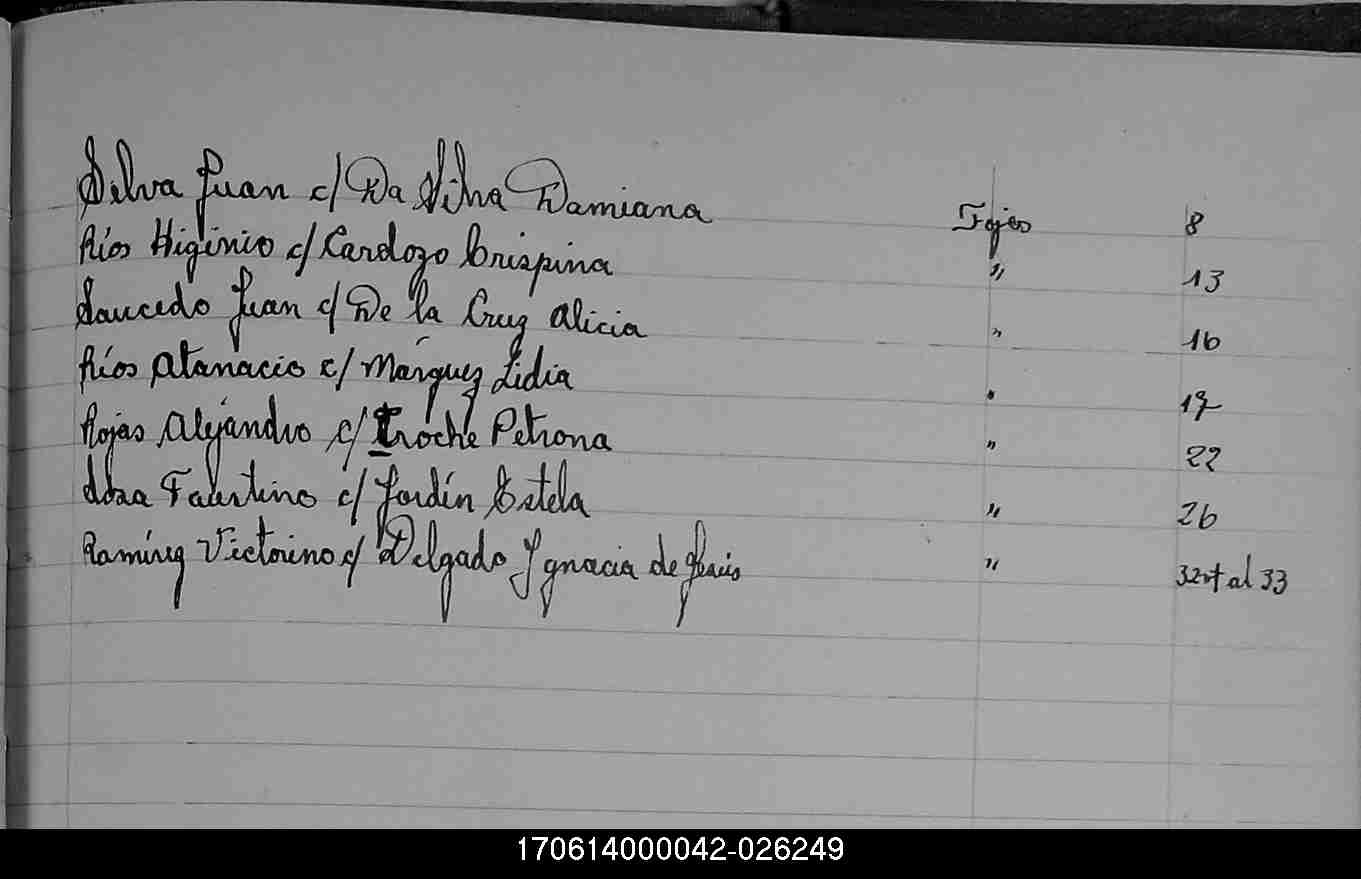 Silva Juan c/ Da Silva Damiana Fojas 8
Ríos Higinio c/ Cardozo Crispina " 13
Saucedo Juan c/ De la Cruz Alicia " 16
Ríos Atanacio c/ Márquez Lidia " 17
Rojas Alejandro c/ Troche Petrona " 22
Faustino c/ Jordín Estela " 26
Ramírez Victorino c/ Delgado Ygnacia de Jesús " 32vt al 33
170614000042-026249